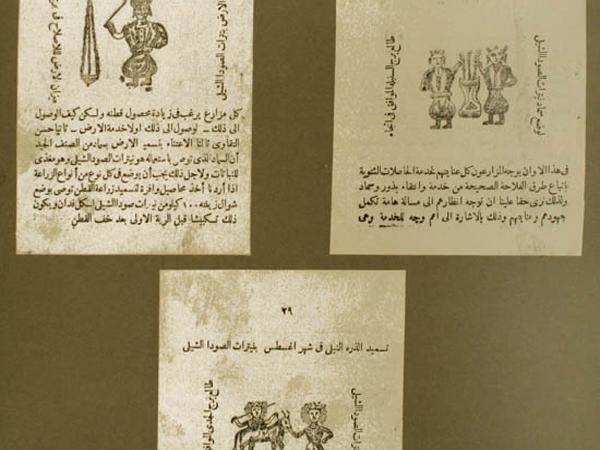 الارض بنترات الصودا الشيلى
كل مزارع يرغب فى زيادة محصول قطنه ولكن كيف الوصول
الى ذلك – لوصول الى ذلك اولا خدمة الارض – ثانيا حسن
التقاوى ثالثا الاعتناء بتسميد الارض بسماد من الصنف الجيد
أن السماد الذى نوصى باستعماله هو نيترات الصودا الشيلى وهو مغذى
للنباتات ولاجل ذلك يجب أن يوضع فى كل نوع من أنواع الزراعة
اذا أردنا أخذ محاصيل وافرة لتسميد زراعة القطن نوصى بوضع
شوال زنته ١٠٠ كيلو من نيترات صودا الشيلى لكل فدان ويكون
ذلك تسكبيشا قبل الرية الاولى بعد خف القطن
طالع برج السنبلة الموافق فى انجاه
لوضع سماد نيترات الصودا الشيلى
فى هذا الاوان يوجه المزارعون كل عنايتهم لخدمة الحاصلات الشتوية
بإتباع طرق الفلاحة الصحيحة من خدمة وانتقاء بذور وسماد
ولذلك نرى حقا علينا ان نوجه انظارهم الى مسالة هامة تكمل
جهودهم وعنايتهم وذلك بالاشارة الى أهم وجه للخدمة وهى
٢٩
تسميد الذره النيلى فى شهر اغسطس بنيترات الصودا الشيلى
طالع برج الجدى الموافق
نيترات الصودا الشيلى